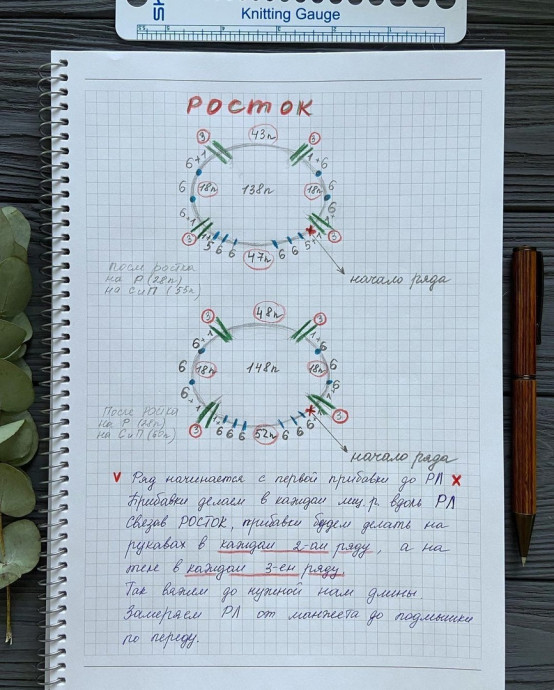 SH
Knitting Gauge
РОСТОК
3 43п 3
6+1 1+6
6 18п 138п 18п 6
6+1 6
3 1+5 6 6 47п 6 6 5+1 3
После ростка
на Р (28п)
на СиП (55п)
начало ряда
3 48п 3
6+1 1+6
6 18п 148п 18п 6
6+1 6
3 6 6 6 52п 6 6 6 3
После Ростка
на Р (28п)
на СиП (60п)
начало ряда
V Ряд начинается с первой прибавки до РЛ X
Прибавки делаем в каждом лиц.р вдоль РЛ
Связав РОСТОК, прибавки будем делать на
рукавах в каждом 2-ом ряду, а на
теле в каждом 3-ем ряду.
Так вяжем до нужной нам длины.
Замеряем РЛ от манжета до подмышки
по переду.